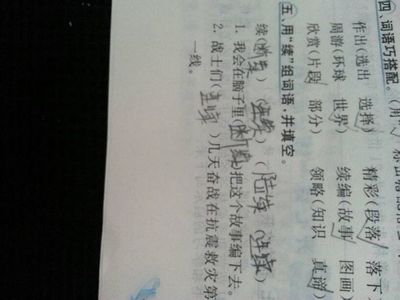 四、词语巧搭配。(用
作出(选出 选择) 精彩(段落 落下
周游(环球 世界) 续编(故事 图画
欣赏(片段 部分) 领略(知识 真谛
五、用“续”组词语,并填空。
续(断续) (连续) (陆续) (连续)
1. 我会在脑子里(断续)把这个故事编下去。
2. 战士们(连续)几天奋战在抗震救灾第
一线。